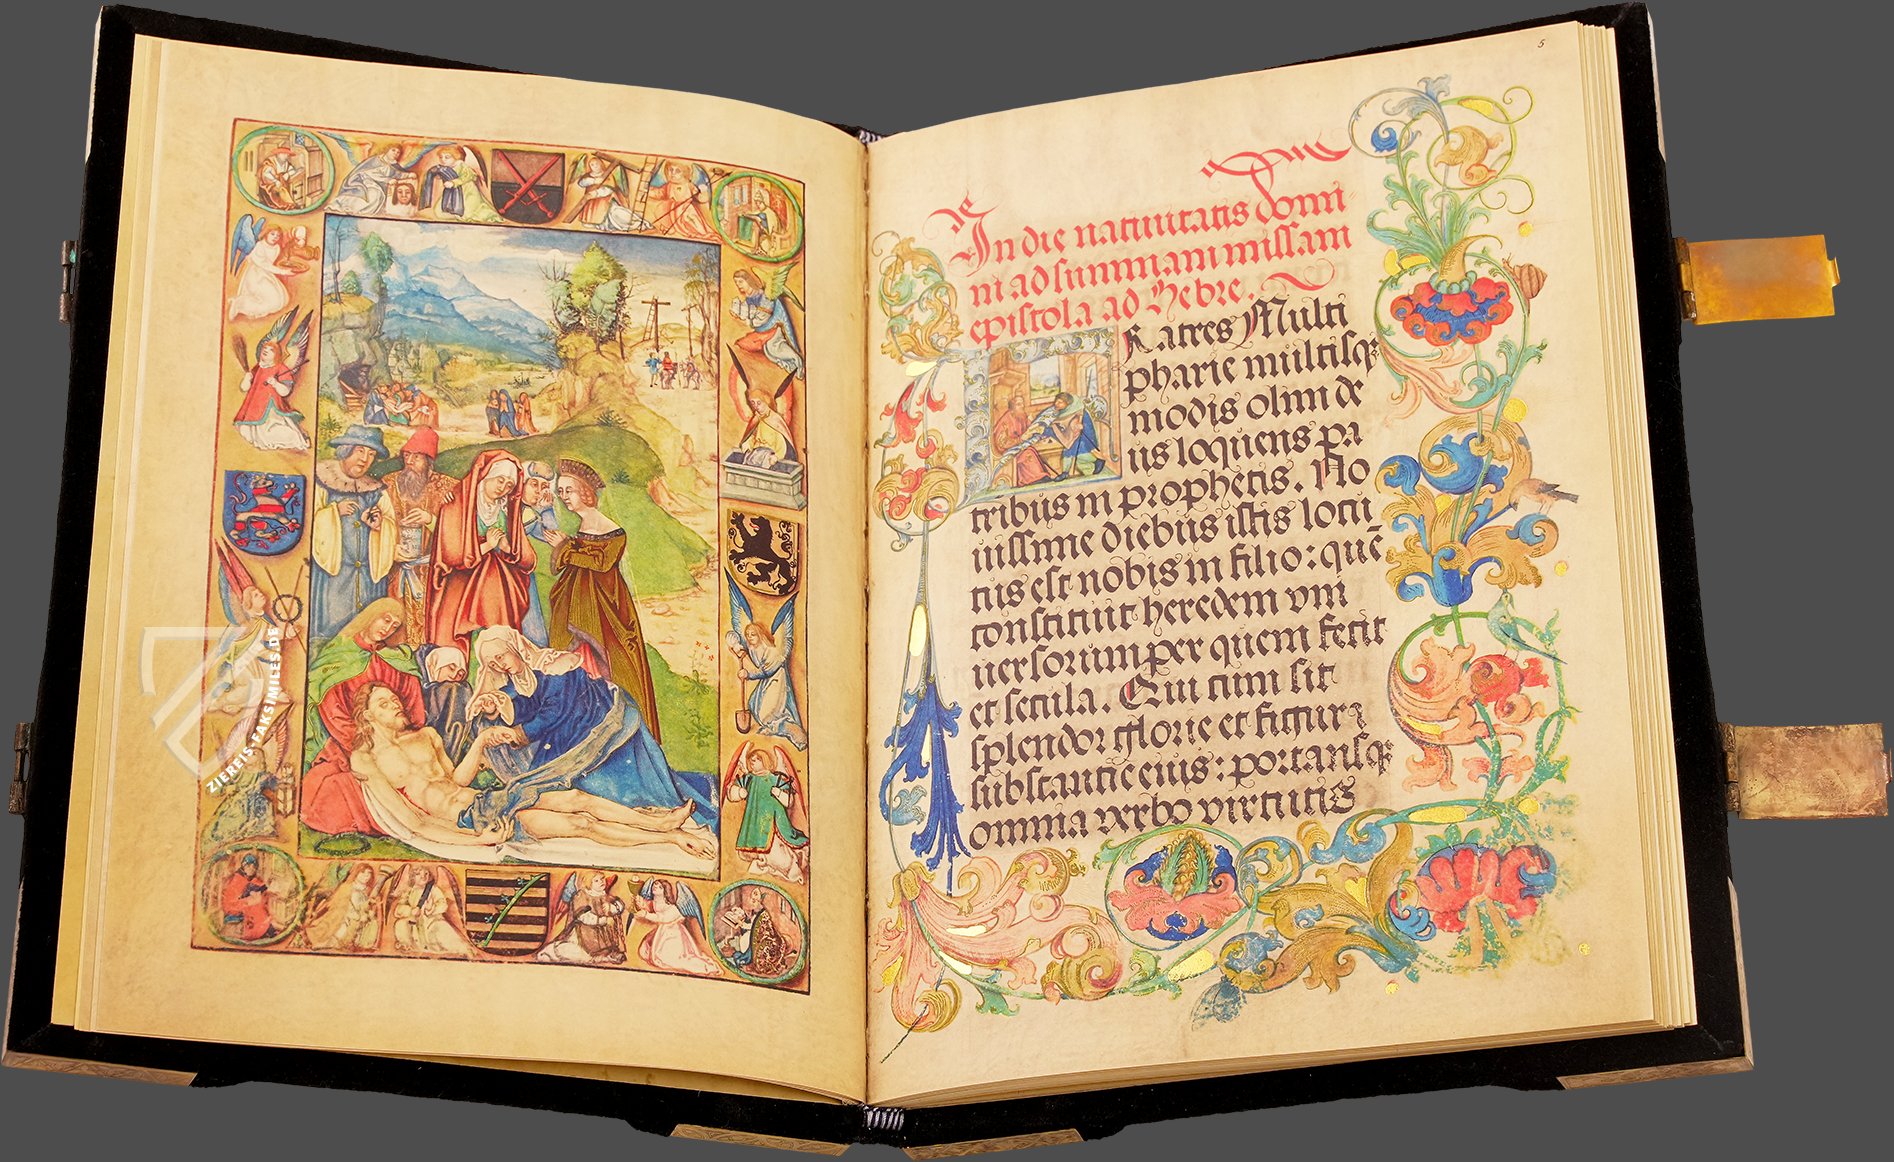 5
In die natiuitatis domi-
ni ad summam missam
epistola ad Hebre.
Fratres Multi
pharie multisq3
modis olim de
us loquens pa
tribus in prophetis. No
uissime diebus istis locu
tus est nobis in filio: quē
constituit heredem vni
uersorum per quem fecit
et secula. Qui cum sit
splendor glorie et figura
substantie eius: portansq3
omnia verbo virtutis
ZIEREIS-FAKSIMILES.DE